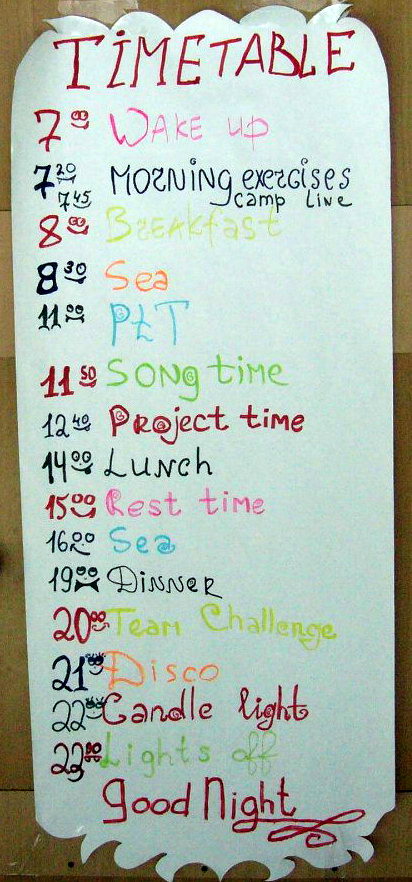 TiMETABLE
7 00 WAKE up
7 20 MORNiNg exercises
7 45 camp Live
8 00 BREAKfast
8 30 Sea
11 00 PtT
11 50 SONg time
12 40 Project time
14 00 LUNCH
15 00 Rest time
16 00 Sea
19 00 DiNNER
20 00 Team Challenge
21 00 Disco
22 Candle light
Lights off
good Night